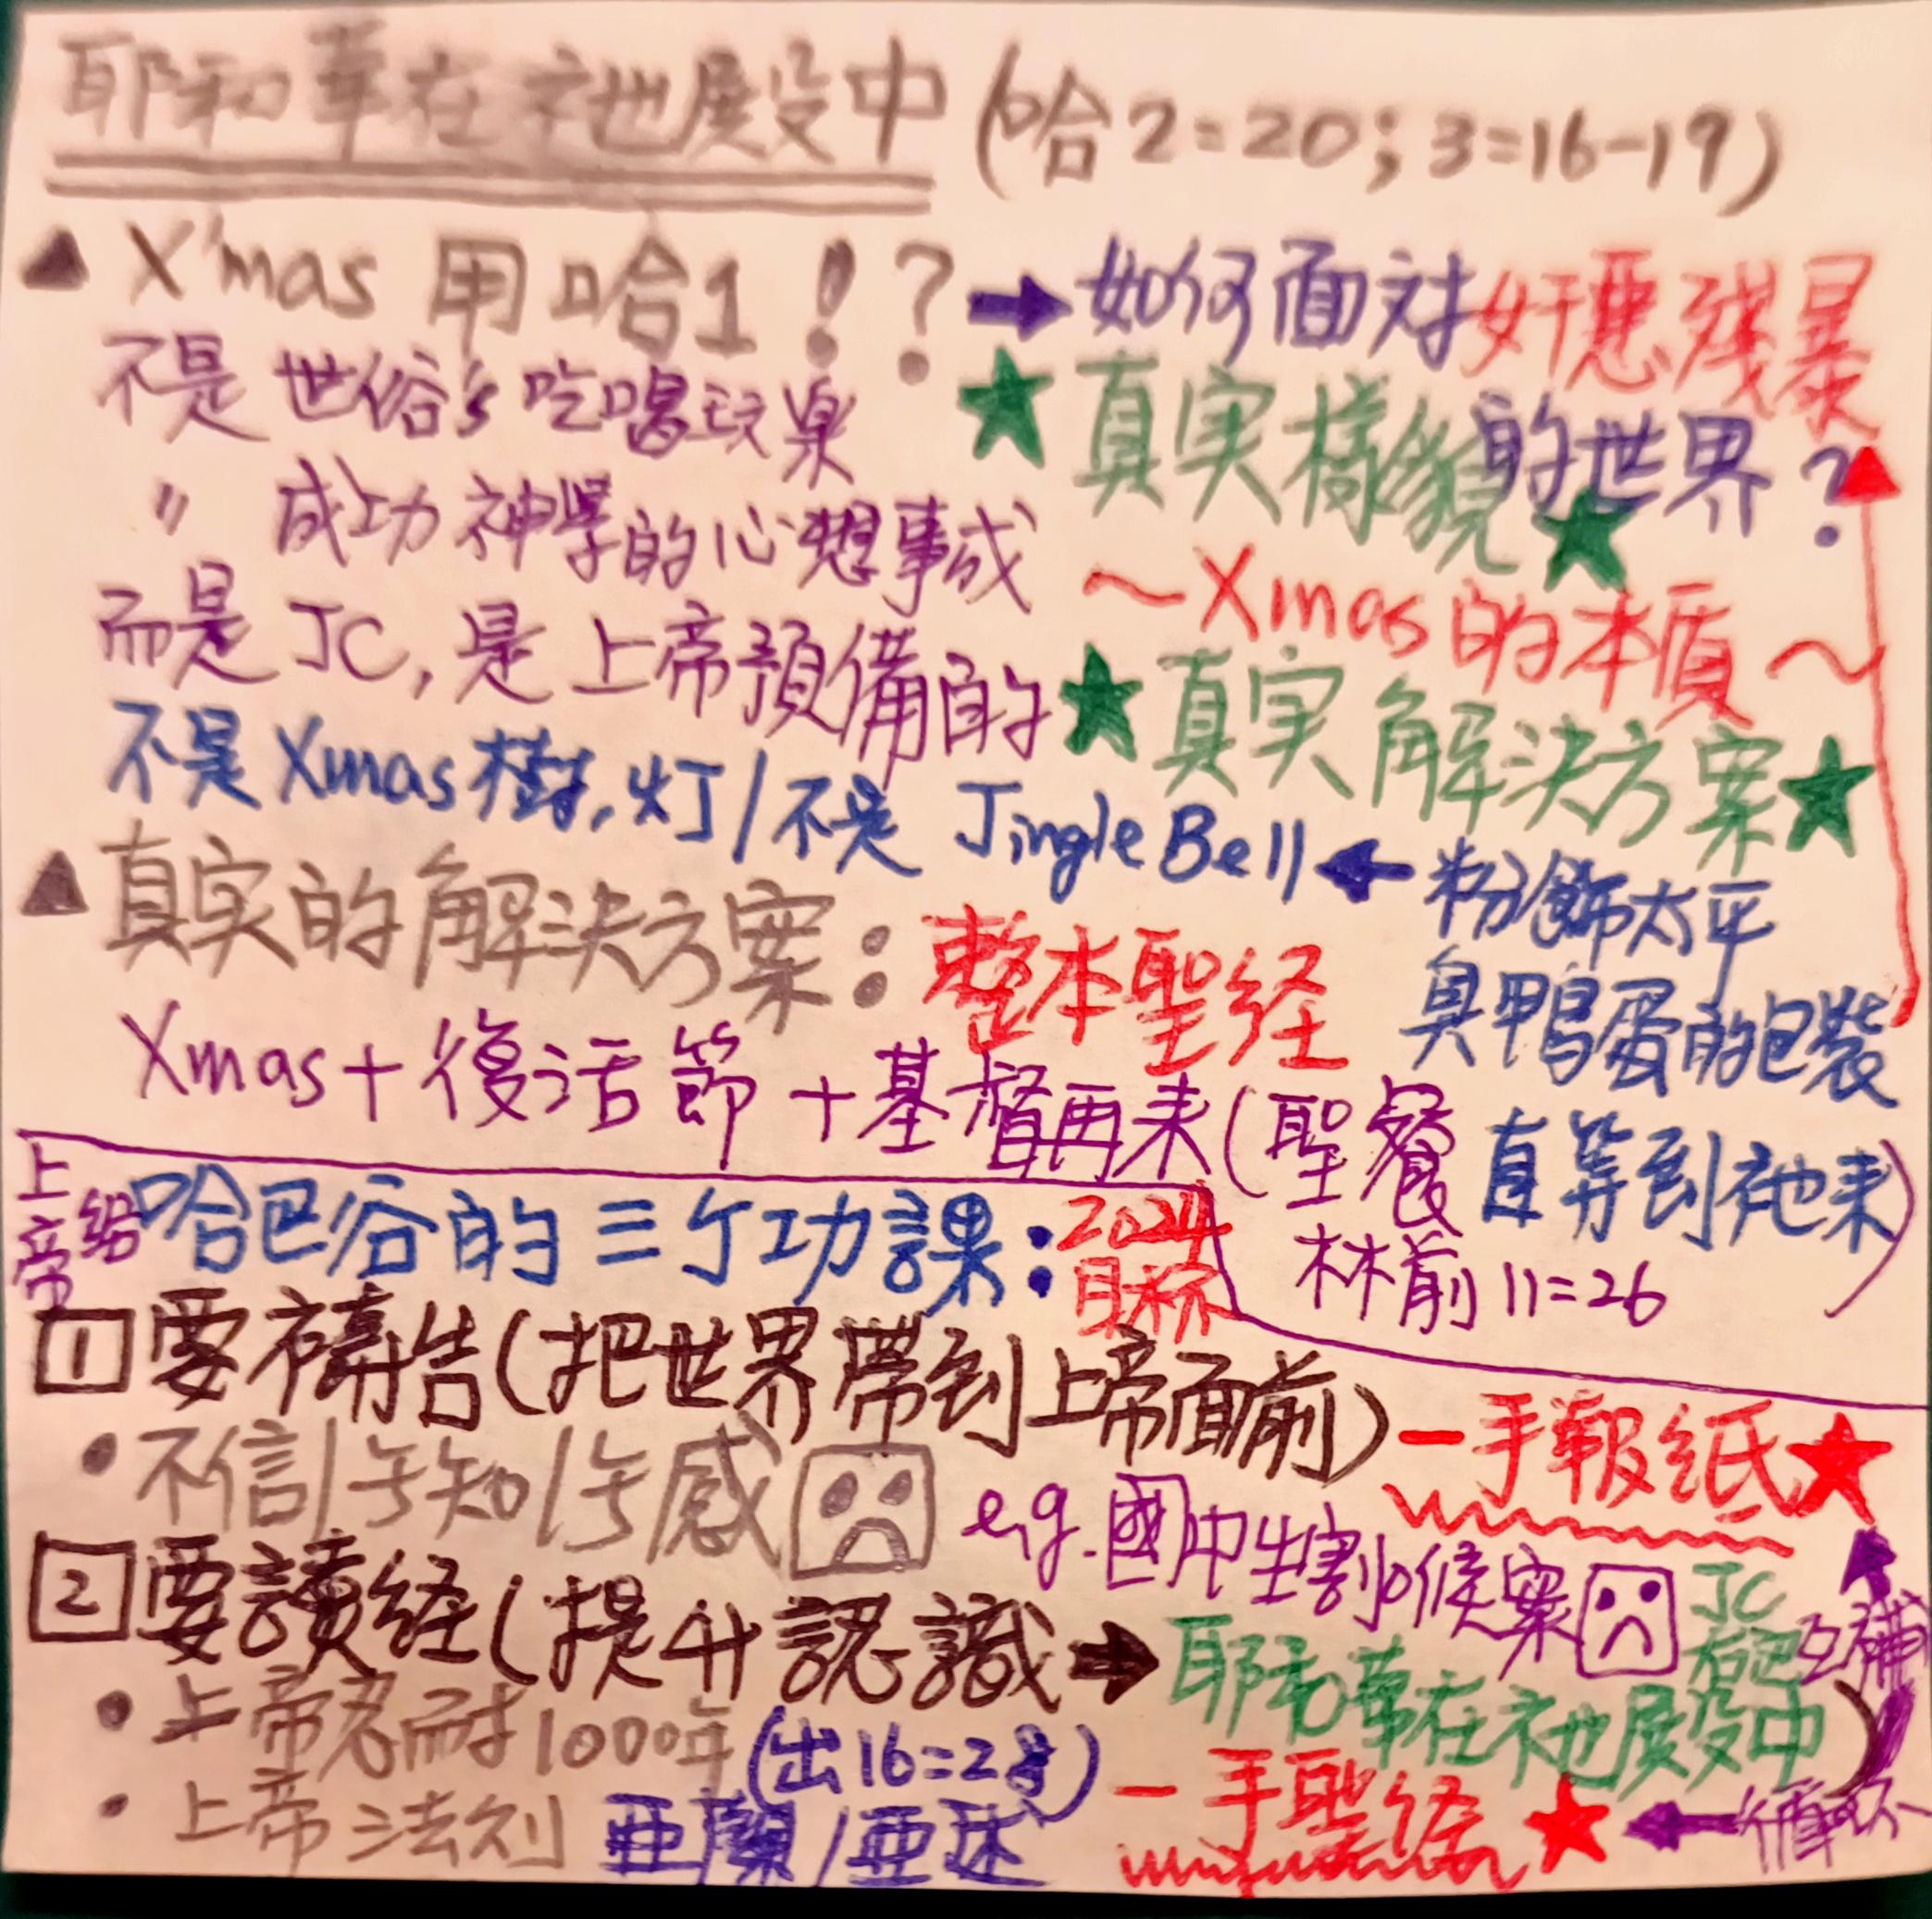 耶和華在祂殿中 (哈2:20; 3:16-19)
▲ X'mas 用哈1!? → 如何面對奸惡殘暴
不是 世俗's 吃喝玩樂 ★真実樣貌的世界?★
〃 成功神學的心想事成
~Xmas的本質~
而是 JC, 是上帝預備的★真実解決方案★
不是 Xmas樹,灯/不是 Jingle Bell ← 粉飾太平
臭鴨蛋的包裝
▲ 真実的解決方案: 整本聖経
Xmas+復活節+基督再来(聖餐 直等到祂来)
林前 11:26
上帝给哈巴谷的三个功課: 2024目标
1 要禱告(把世界帶到上帝面前) 一手報紙★
• 不信/知/感 e.g. 國中生割喉案
2 要讀経(提升認識 → 耶和華在祂殿中)
JC
互補
• 上帝忍耐1000年 (出16:28)
• 上帝法则 亜蘭/亜述 一手聖経★ ←